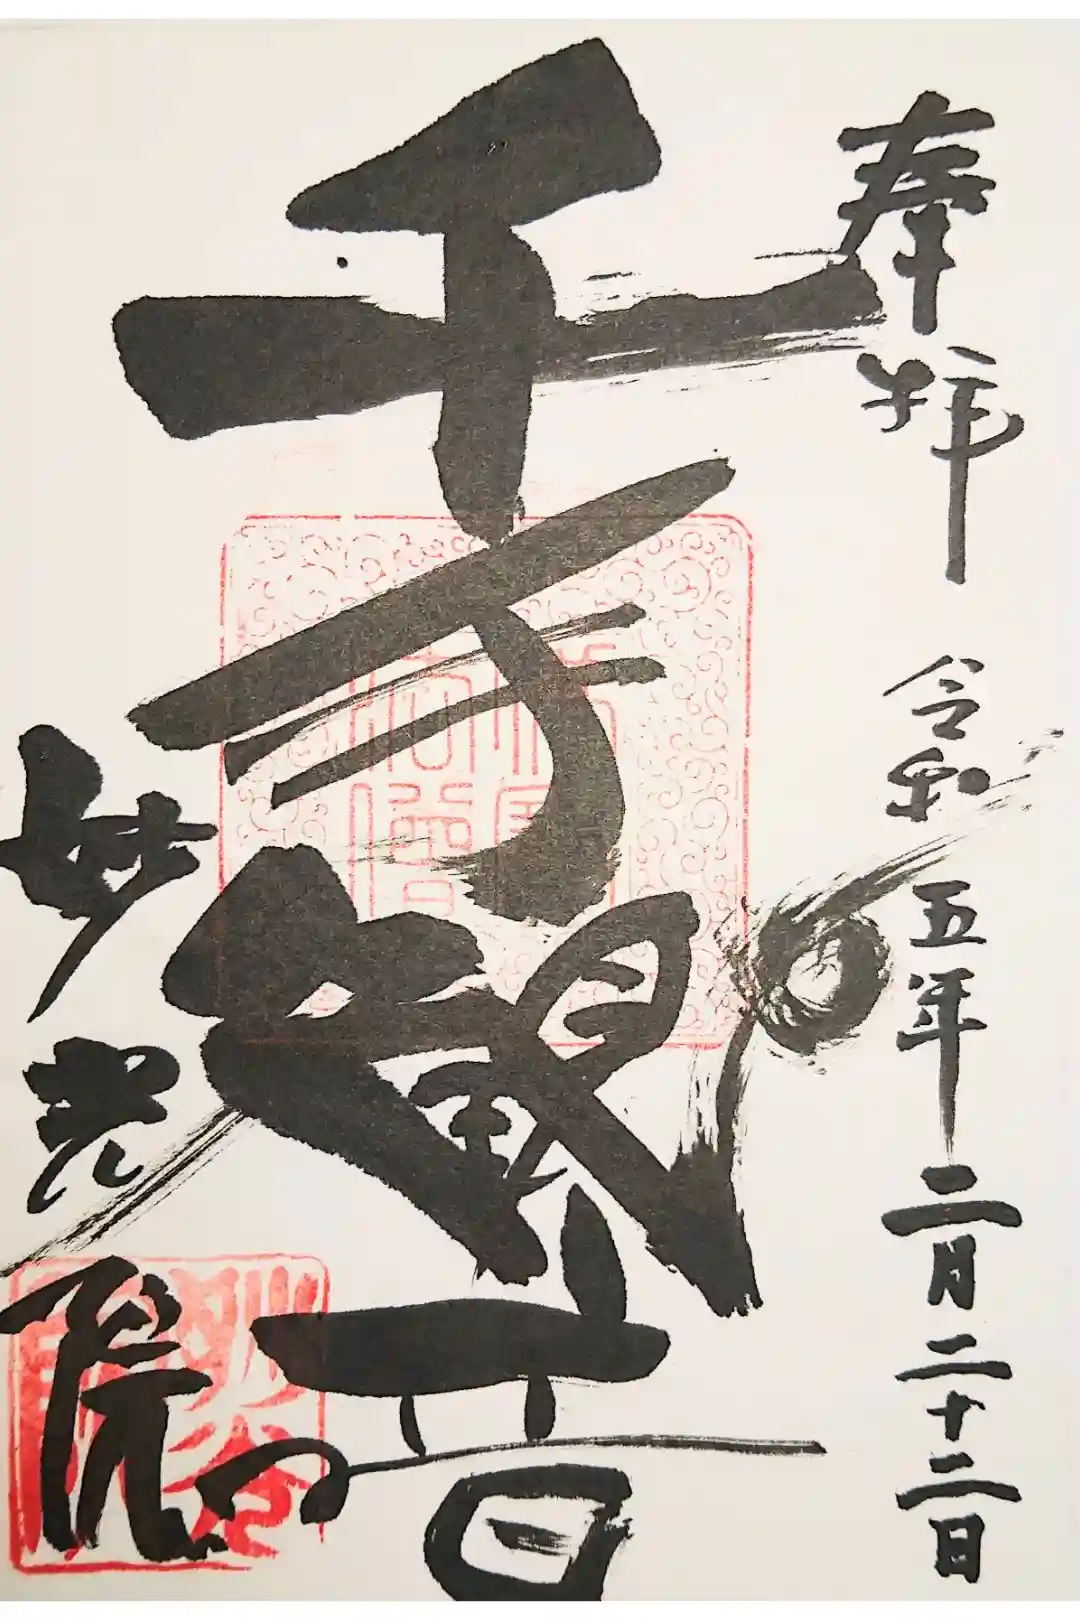 奉拝
令和五年二月二十二日
千手観音
妙光院